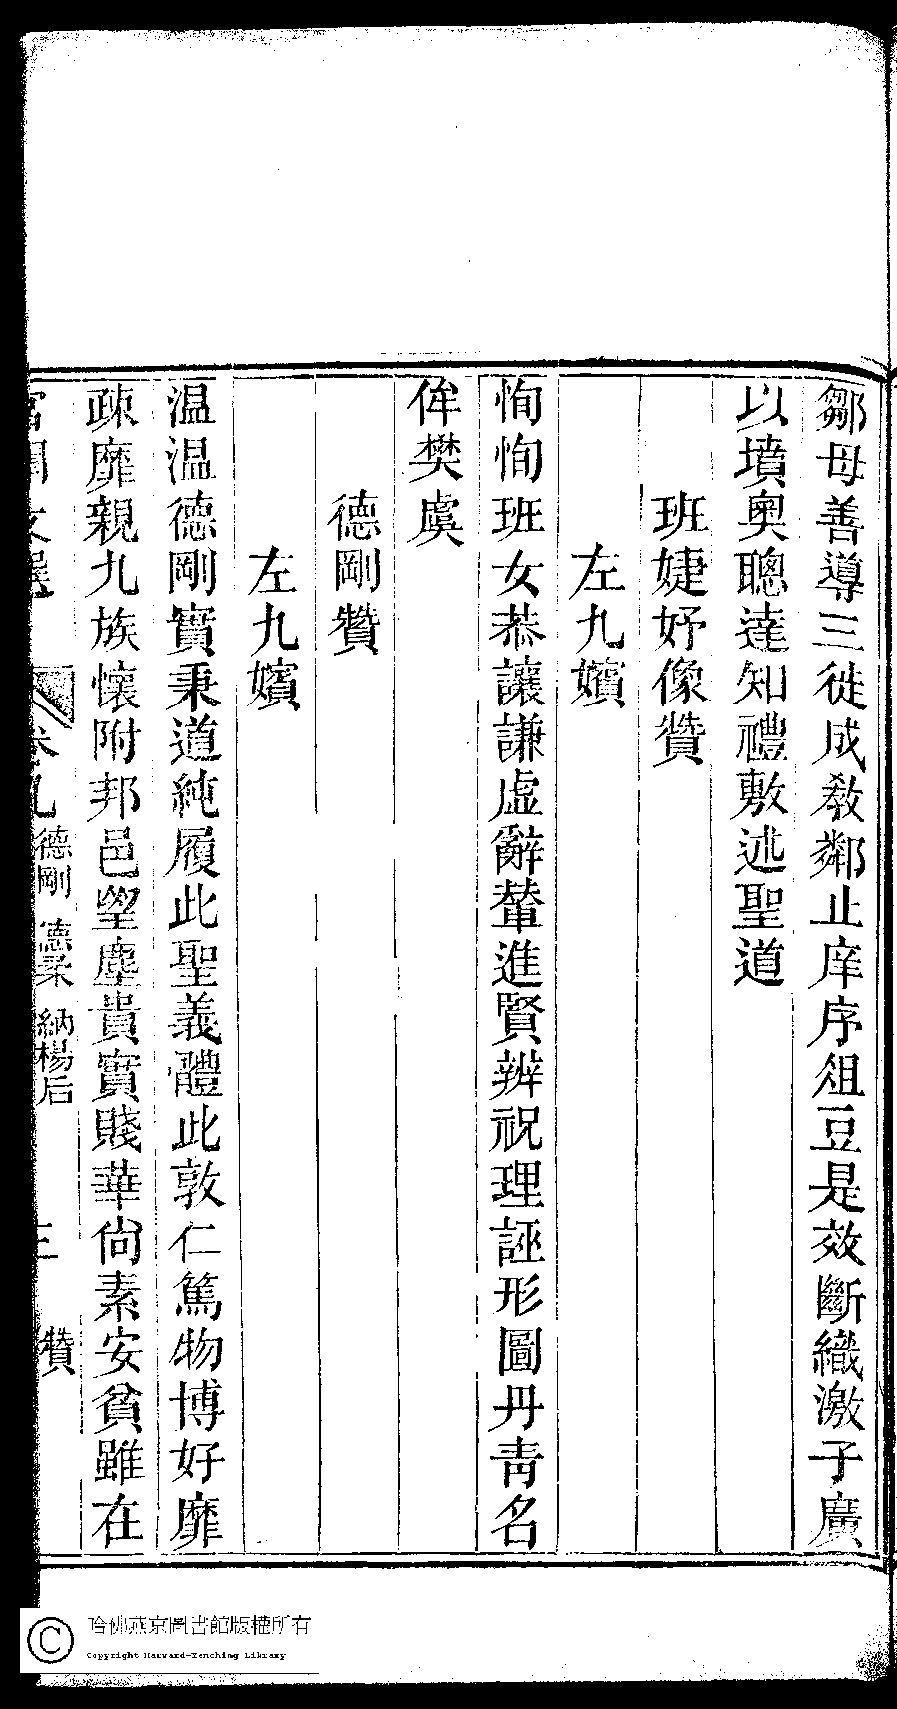 鄒母善導三徙成敎鄰止庠序俎豆是效斷織激子廣
以墳奧聰達知禮敷述聖道
班婕妤像贊
左九嬪
恂恂班女恭讓謙虛辭輦進賢辨祝理誣形圖丹青名
侔樊虞
德剛贊
左九嬪
温温德剛實秉道純履此聖義體此敦仁篤物博好靡
疎靡親九族懷附邦邑望塵貴實賤華尙素安貧雖在
宮閨文選
卷九
德剛 德柔 納楊后
三
贊
哈佛燕京圖書館版權所有
Copyright Harvard-Yenching Library